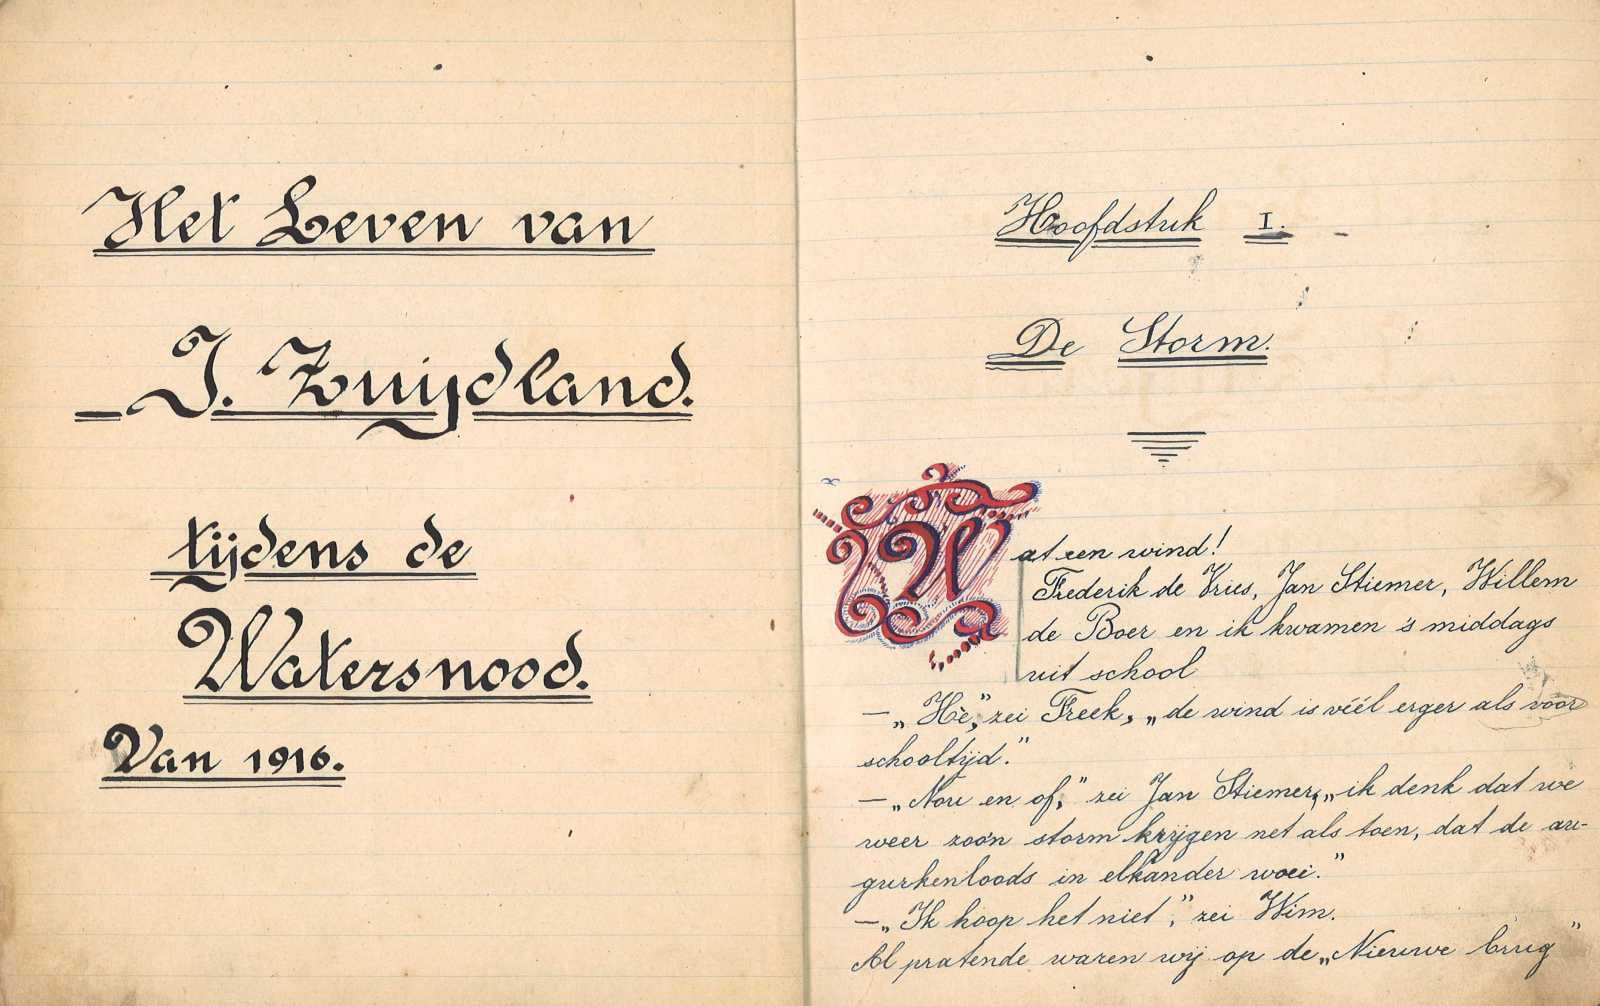 Het Leven van
J. Zuijdland.
tijdens de
Watersnood.
Van 1916.
Hoofdstuk I.
De Storm.
Wat een wind!
Frederik de Vries, Jan Stiemer, Willem
de Boer en ik kwamen 's middags
uit school
—„Hè," zei Freek, „de wind is véél erger als voor
schooltijd."
—„Nou en of," zei Jan Stiemer, „ik denk dat we
weer zoo'n storm krijgen net als toen, dat de au-
gurkenloods in elkander woei."
—„Ik hoop het niet," zei Wim.
Al pratende waren wij op de „Nieuwe brug"